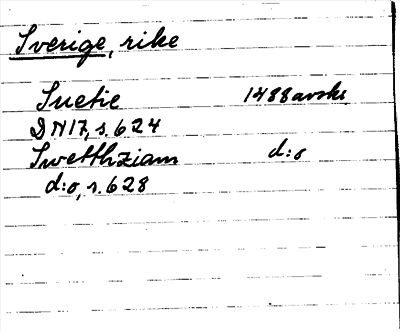 Sverige, rike
Suetie 1488 avskr
DN 17, s. 624
Swetthziam d:o
d:o, s. 628